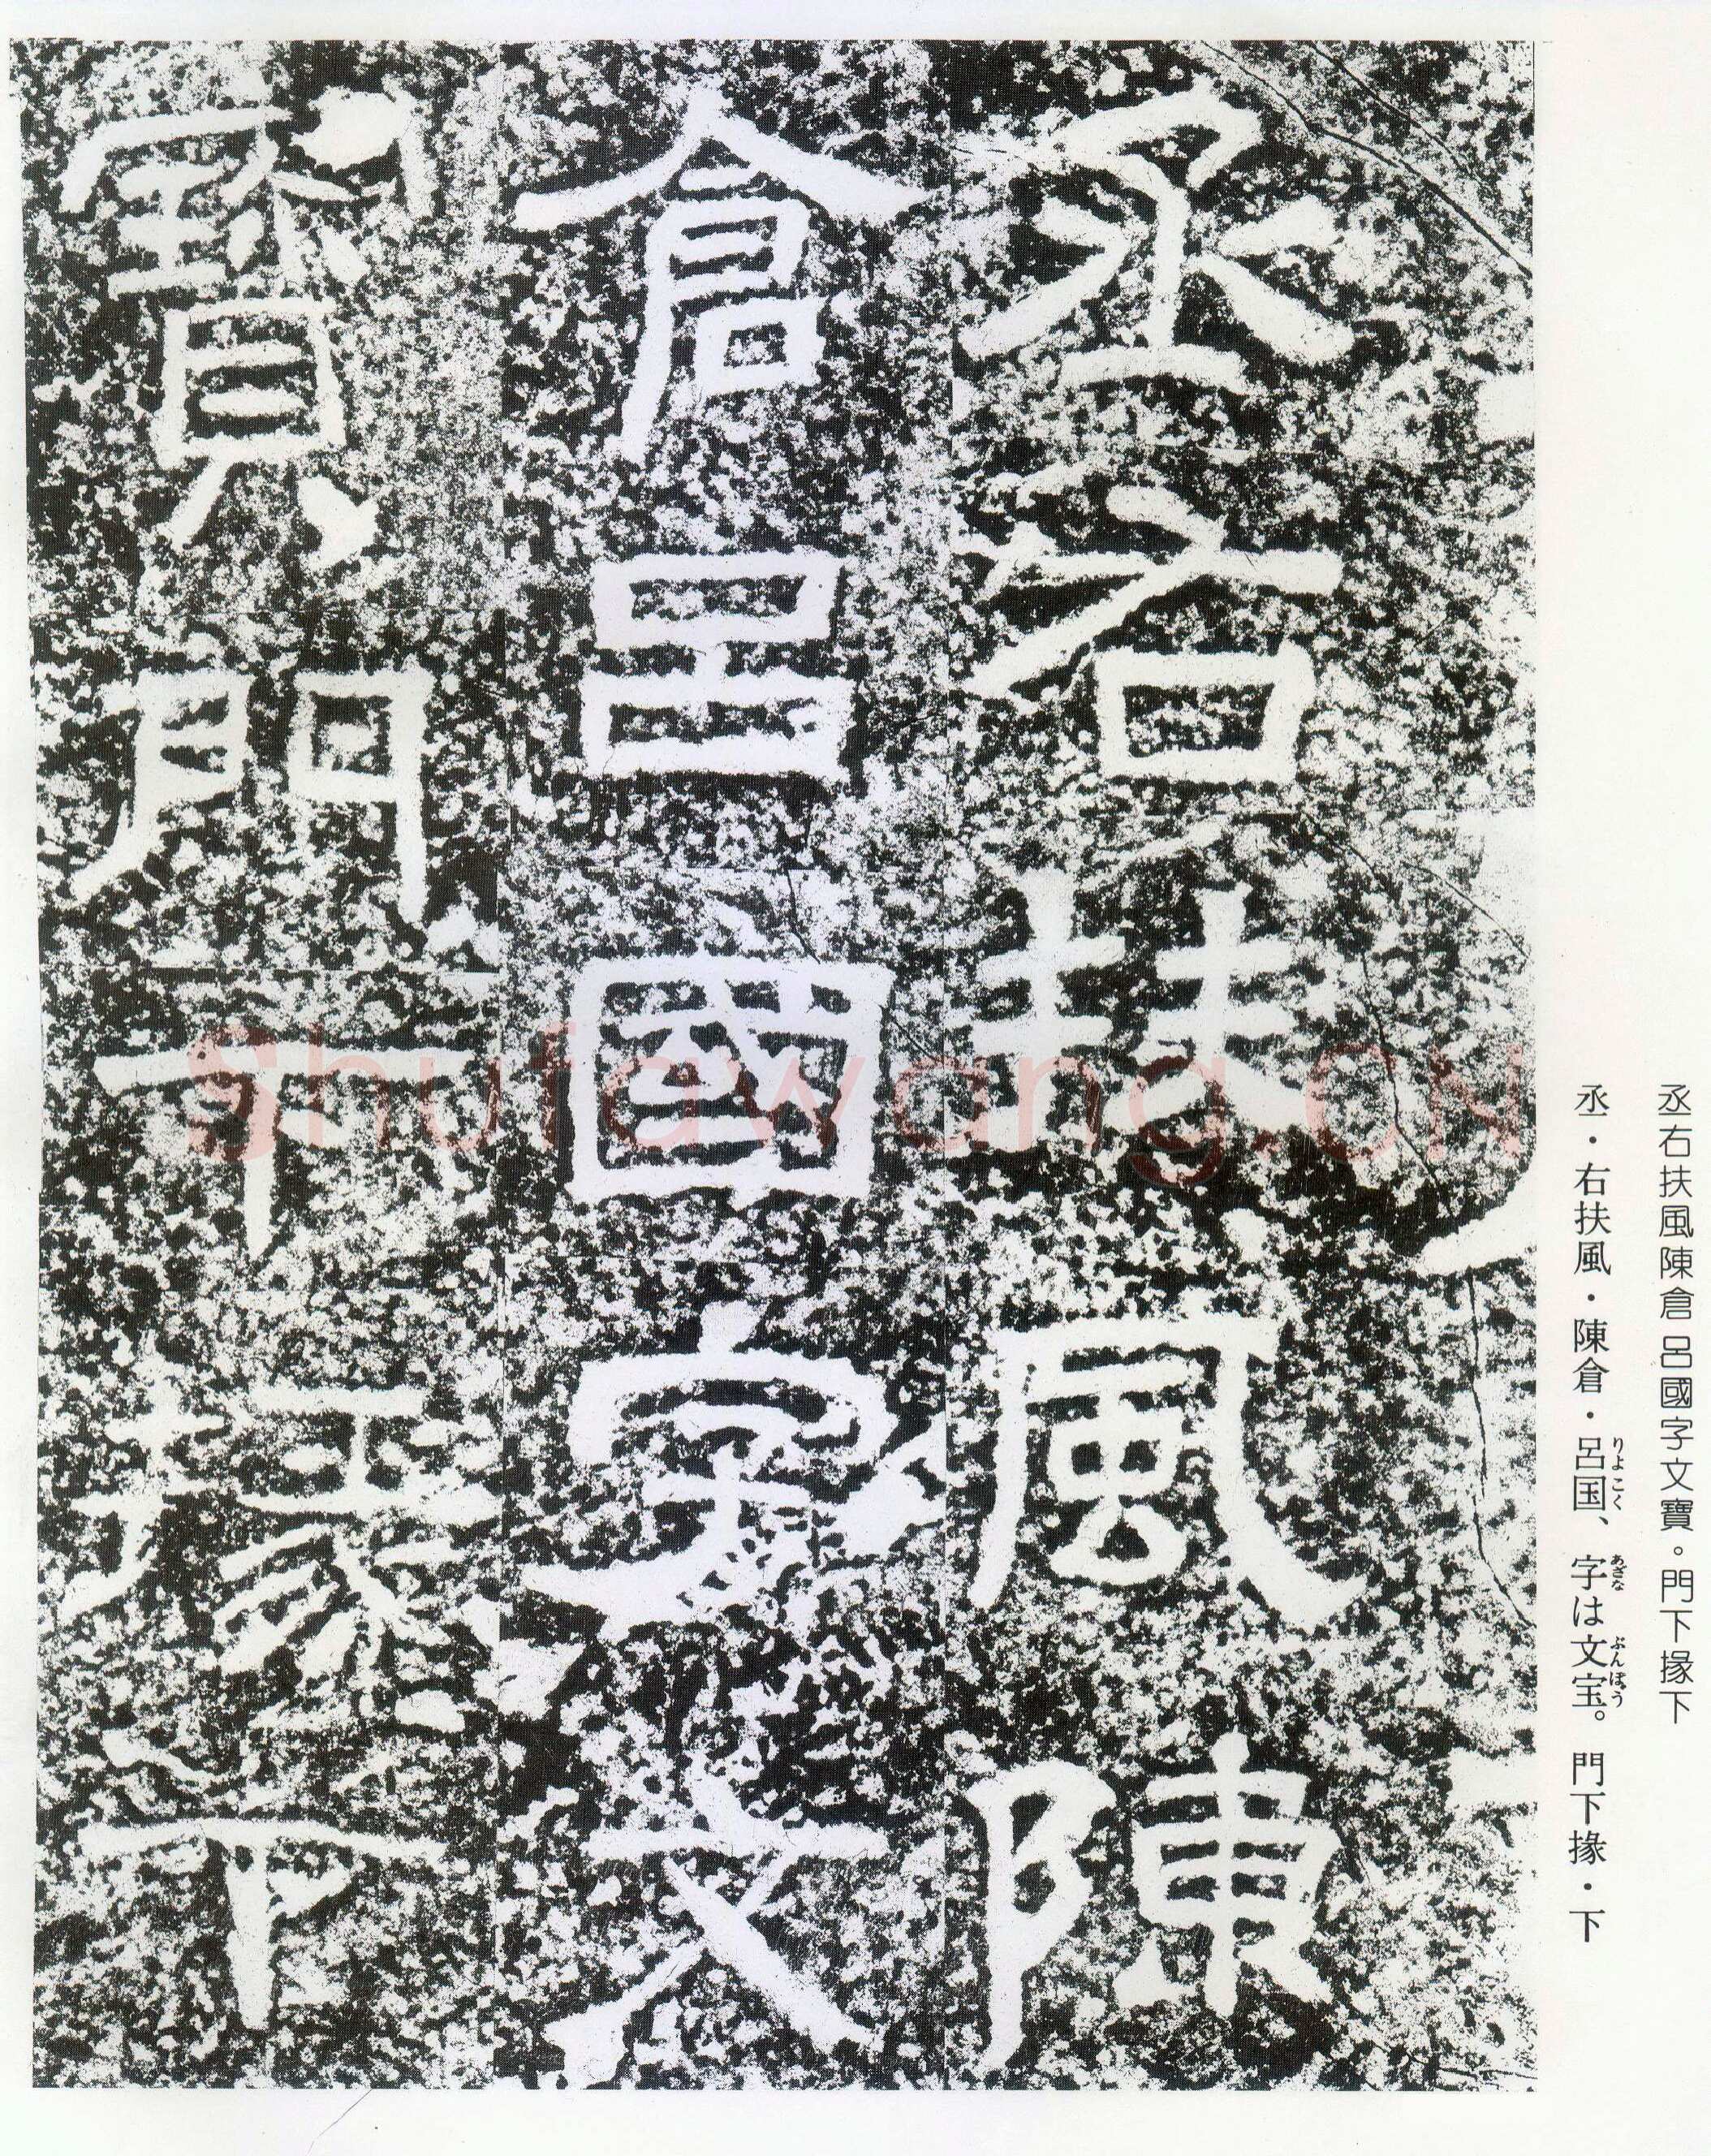 丞右扶風陳倉呂國字文寶。門下掾下
丞・右扶風・陳倉・呂国、字は文宝。門下掾・下
りよこく
あざな
ぶんぽう
丞右扶風陳
倉呂國字文
寶門下掾下
Shufawang.CN